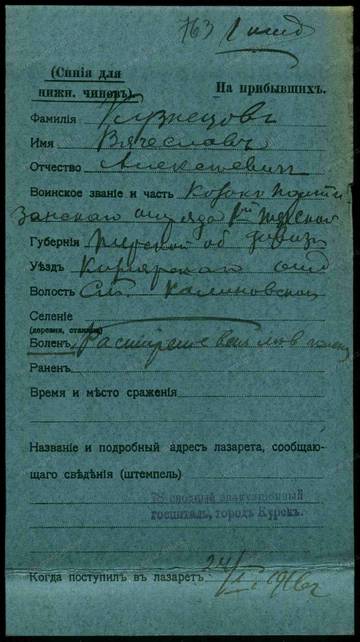 763
(Синія для
нижн. чиновъ).
На прибывшихъ.
Фамилія Кузнецовъ
Имя Вячеславъ
Отчество Алексѣевич
Воинское званіе и часть Козокъ парти
занскаго отряда
Губернія Терской об
Уѣздъ
Волость Ст. Калиновской
Селеніе
(деревня, станица)
Боленъ Расширеніе венъ лѣв
Раненъ
Время и мѣсто сраженія
Названіе и подробный адресъ лазарета, сообщаю-
щаго свѣдѣнія (штемпель)
78 сводный эвакуаціонный
госпиталь, городъ Курскъ.
Когда поступилъ въ лазаретъ 24/ 1916г